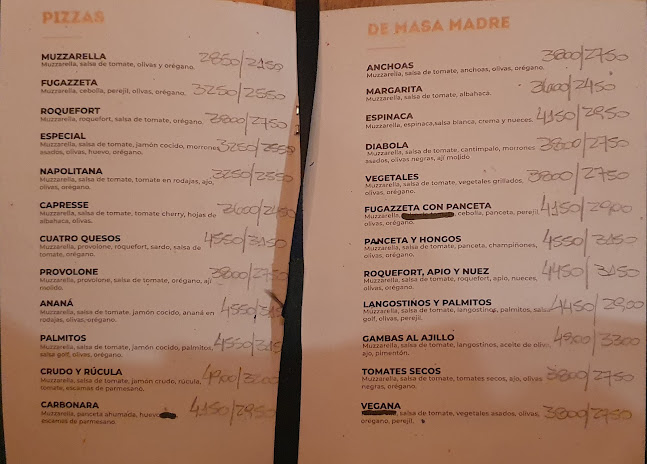 PIZZAS
MUZZARELLA 2850/2150
Muzzarella, salsa de tomate, olivas y orégano.
FUGAZZETA 3250/2550
Muzzarella, cebolla, perejil, olivas, orégano.
ROQUEFORT 3800/2750
Muzzarella, roquefort, salsa de tomate, orégano.
ESPECIAL 3250/2550
Muzzarella, salsa de tomate, jamón cocido, morrones
asados, olivas, huevo, orégano.
NAPOLITANA 3250/2550
Muzzarella, salsa de tomate, tomate en rodajas, ajo,
olivas, orégano.
CAPRESSE 3600/2450
Muzzarella, salsa de tomate, tomate cherry, hojas de
albahaca, olivas.
CUATRO QUESOS 4550/3150
Muzzarella, provolone, roquefort, sardo, salsa de
tomate, orégano.
PROVOLONE 3800/2750
Muzzarella, provolone, salsa de tomate, orégano, ají
molido.
ANANÁ 4550/315
Muzzarella, salsa de tomate, jamón cocido, ananá en
rodajas, olivas, orégano.
PALMITOS 4550/315
Muzzarella, salsa de tomate, jamón cocido, palmitos,
salsa golf, olivas, orégano.
CRUDO Y RÚCULA 4900/3200
Muzzarella, salsa de tomate, jamón crudo, rúcula,
tomate, escamas de parmesano.
CARBONARA 4150/2950
Muzzarella, panceta ahumada, huevo
escamas de parmesano.
DE MASA MADRE
ANCHOAS 3800/2750
Muzzarella, salsa de tomate, anchoas, olivas, orégano.
MARGARITA 3600/2450
Muzzarella, salsa de tomate, albahaca.
ESPINACA 4150/2950
Muzzarella, espinaca, salsa blanca, crema y nueces.
DIABOLA 3800/2750
Muzzarella, salsa de tomate, cantimpalo, morrones
asados, olivas negras, ají molido
VEGETALES 3800/2750
Muzzarella, salsa de tomate, vegetales grillados,
olivas, orégano.
FUGAZZETA CON PANCETA 4150/2900
Muzzarella, cebolla, panceta, perejil,
olivas, orégano.
PANCETA Y HONGOS 4550/3150
Muzzarella, salsa de tomate, panceta, champiñones,
olivas, orégano.
ROQUEFORT, APIO Y NUEZ 4450/3150
Muzzarella, salsa de tomate, roquefort, apio, nueces,
olivas, orégano.
LANGOSTINOS Y PALMITOS 4450/2900
Muzzarella, salsa de tomate, langostinos, palmitos, salsa
golf, olivas, perejil.
GAMBAS AL AJILLO 4900/3300
Muzzarella, salsa de tomate, langostinos, aceite de oliva,
ajo, pimentón.
TOMATES SECOS 3800/2750
Muzzarella, salsa de tomate, tomates secos, ajo, olivas
negras, orégano.
VEGANA 3800/2750
, salsa de tomate, vegetales asados, olivas,
orégano, perejil.